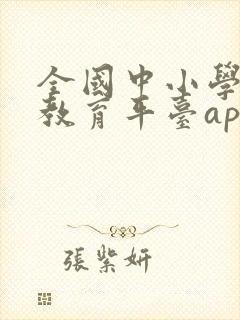 全國中小學
教育平臺ap
張紫妍